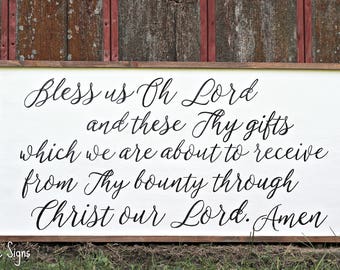 Bless us Oh Lord
and these Thy gifts
which we are about to receive
from Thy bounty through
Christ our Lord. Amen
Signs